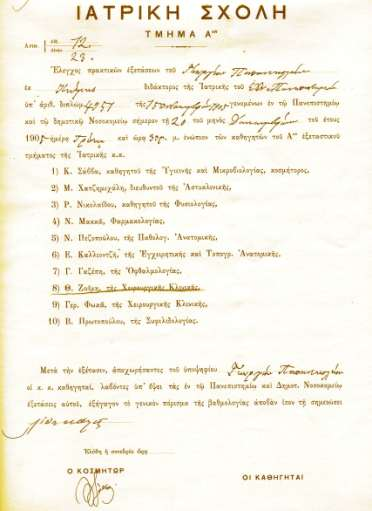 ΙΑΤΡΙΚΗ ΣΧΟΛΗ
ΤΜΗΜΑ Αον
12
23
Ἔλεγχος πρακτικῶν ἐξετάσεων τοῦ Γεωργίου Παπανικολάου
ἐκ διδάκτορος τῆς Ἰατρικῆς τοῦ
ὑπ' ἀριθ. διπλώμ. 4951 τῆς γενομένων ἐν τῷ Πανεπιστημίῳ
καὶ τῷ δημοτικῷ Νοσοκομείῳ σήμερον τῇ 20 τοῦ μηνὸς τοῦ ἔτους
190 ἡμέρᾳ Τρίτῃ καὶ ὥρᾳ μ. ἐνώπιον τῶν καθηγητῶν τοῦ Αου ἐξεταστικοῦ
τμήματος τῆς Ἰατρικῆς κ.κ.
1) Κ. Σάββα, καθηγητοῦ τῆς Ὑγιεινῆς καὶ Μικροβιολογίας, κοσμήτορος,
2) Μ. Χατζημιχάλη, διευθυντοῦ τῆς Ἀστυκλινικῆς,
3) Ρ. Νικολαΐδου, καθηγητοῦ τῆς Φυσιολογίας,
4) Ν. Μακκᾶ, Φαρμακολογίας,
5) Ν. Πεζοπούλου, τῆς Παθολογ. Ἀνατομικῆς,
6) Ε. Καλλιοντζῆ, τῆς Ἐγχειρητικῆς καὶ Τοπογρ. Ἀνατομικῆς,
7) Γ. Γαζέπη, τῆς Ὀφθαλμολογίας,
8) Θ. Ζαΐμη, τῆς Χειρουργικῆς Κλινικῆς,
9) Γερ. Φωκᾶ, τῆς Χειρουργικῆς Κλινικῆς,
10) Β. Πρωτοπούλου, τῆς Συφιλιδολογίας.
Μετὰ τὴν ἐξέτασιν, ἀποχωρήσαντος τοῦ ὑποψηφίου Γεωργίου Παπανικολάου
οἱ κ. κ. καθηγηταί, λαβόντες ὑπ' ὄψει τὰς ἐν τῷ Πανεπιστημίῳ καὶ Δημοτ. Νοσοκομείῳ
ἐξετάσεις αὐτοῦ, ἐξήγαγον τὸ γενικὸν πόρισμα τῆς βαθμολογίας ἀποβὰν ἴσον τῇ σημειώσει
λίαν καλῶς
Ἐλύθη ἡ συνεδρία ὥρᾳ
Ο ΚΟΣΜΗΤΩΡ ΟΙ ΚΑΘΗΓΗΤΑΙ